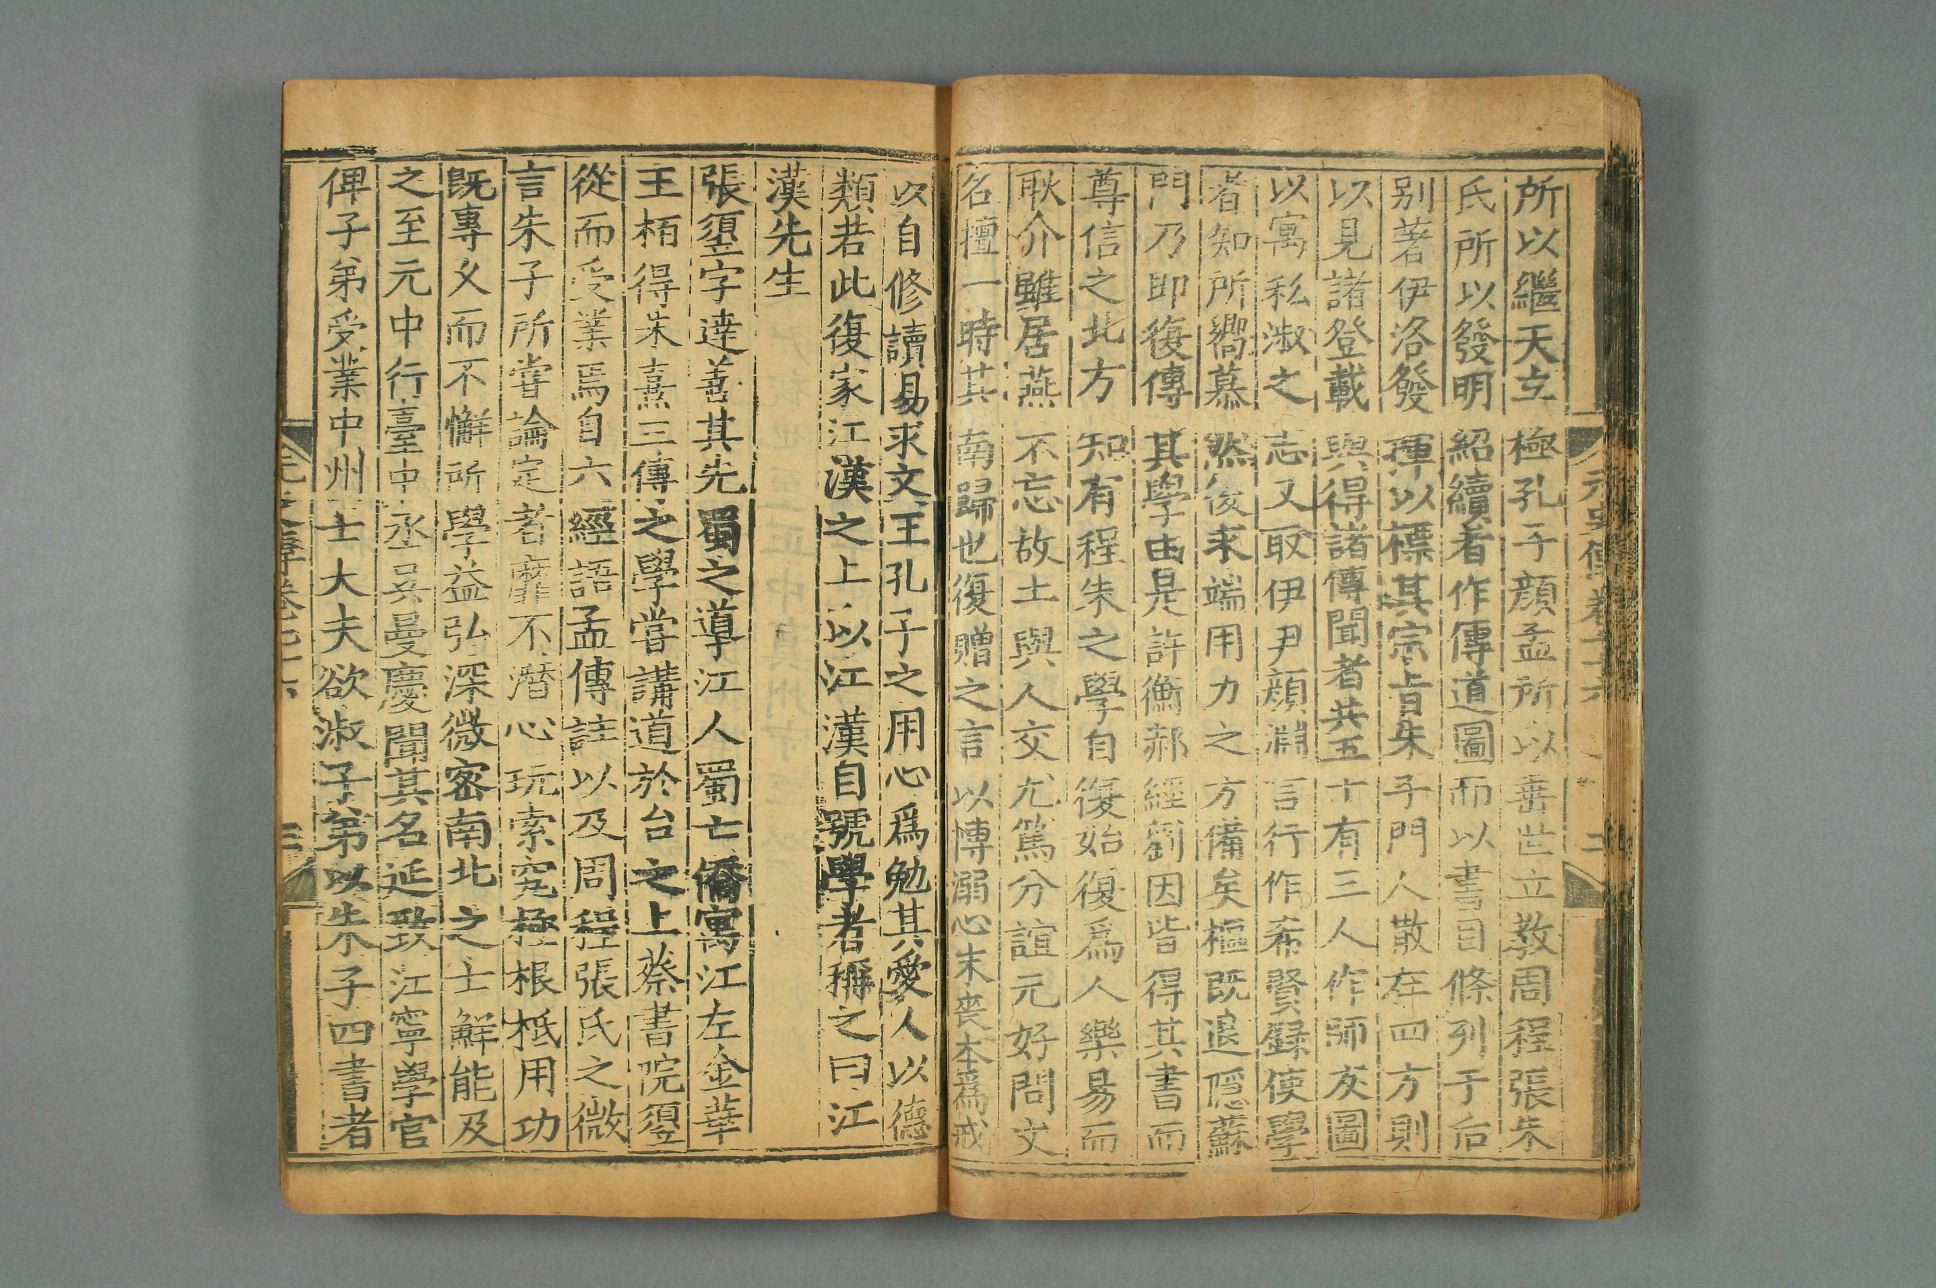 所以繼天立極孔子顔孟所以垂世立教周程張朱
氏所以發明紹續者作傳道圖而以書目條列于后
別著伊洛發揮以標其宗旨朱子門人散在四方則
以見諸登載與得諸傳聞者共五十有三人作師友圖
以寓私淑之志又取伊尹顔淵言行作希賢録使學
者知所嚮慕然後求端用力之方備矣樞既退隱蘇
門乃即復傳其學由是許衡郝經劉因皆得其書而
尊信之北方知有程朱之學自復始復爲人樂易而
耿介雖居燕不忘故土與人交尤篤分誼元好問文
名擅一時其南歸也復贈之言以博溺心末喪本爲戒
以自修讀易求文王孔子之用心爲勉其愛人以德
類若此復家江漢之上以江漢自號學者稱之曰江
漢先生
張𩓣字達善其先蜀之導江人蜀亡僑寓江左金華
王柏得朱熹三傳之學嘗講道於台之上蔡書院𩓣
從而受業焉自六經語孟傳註以及周程張氏之微
言朱子所嘗論定者靡不潛心玩索究極根柢用功
既專久而不懈所學益弘深微密南北之士鮮能及
之至元中行臺中丞吴曼慶聞其名延致江寧學官
俾子弟受業中州士大夫欲淑子弟以朱子四書者
元史傳卷七十六
三
元史傳卷七十六
二